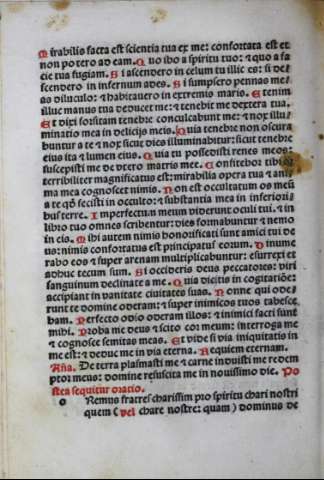 Mirabilis facta est scientia tua ex me: confortata est et
non potero ad eam. Quo ibo a spiritu tuo: & quo a fa
cie tua fugiam. Si ascendero in celum tu illic es: si de/
scendero in infernum ades. Si sumpsero pennas me/
as diluculo: & habitauero in extremis maris. Etenim
illuc manus tua deducet me: & tenebit me dextera tua.
Et dixi forsitam tenebre conculcabunt me: & nox illu/
minatio mea in delicijs meis. Quia tenebre non obscura
buntur a te & nox sicut dies illuminabitur: sicut tenebre
eius ita & lumen eius. Quia tu possedisti renes meos:
suscepisti me de vtero matris mee. Confitebor tibi
terribiliter magnificatus est: mirabilia opera tua & ani/
ma mea cognoscet nimis. Non est occultatum os meū
a te qḋ fecisti in occulto: & substantia mea in inferiori/
bus terre. Imperfectum meum viderunt oculi tui. & in
libro tuo omnes scribentur: dies formabuntur & nemo
in eis. Mihi autem nimis honorificati sunt amici tui de
us: nimis confortatus est principatus eorum. Dinume
rabo eos & super arenam multiplicabuntur: exurrexi et
adhuc tecum sum. Si occideris deus peccatores: viri
sanguinum declinate a me. Quia dicitis in cogitatiōe:
accipiant in vanitate ciuitates suas. Nonne qui ode/
runt te domine oderam: & super inimicos tuos tabesce
bam. Perfecto odio oderam illos: & inimici facti sunt
mihi. Proba me deus & scito cor meum: interroga me
& cognosce semitas meas. Et vide si via iniquitatis in
me est: & deduc me in via eterna. Requiem eternam.
Añа. De terra plasmasti me & carne induisti me redem
ptor meus: domine resuscita me in nouissimo die. Po
stea sequitur oratio.
o Remus fratres charissimi pro spiritu chari nostri
quem (vel chare nostre: quam) dominus de